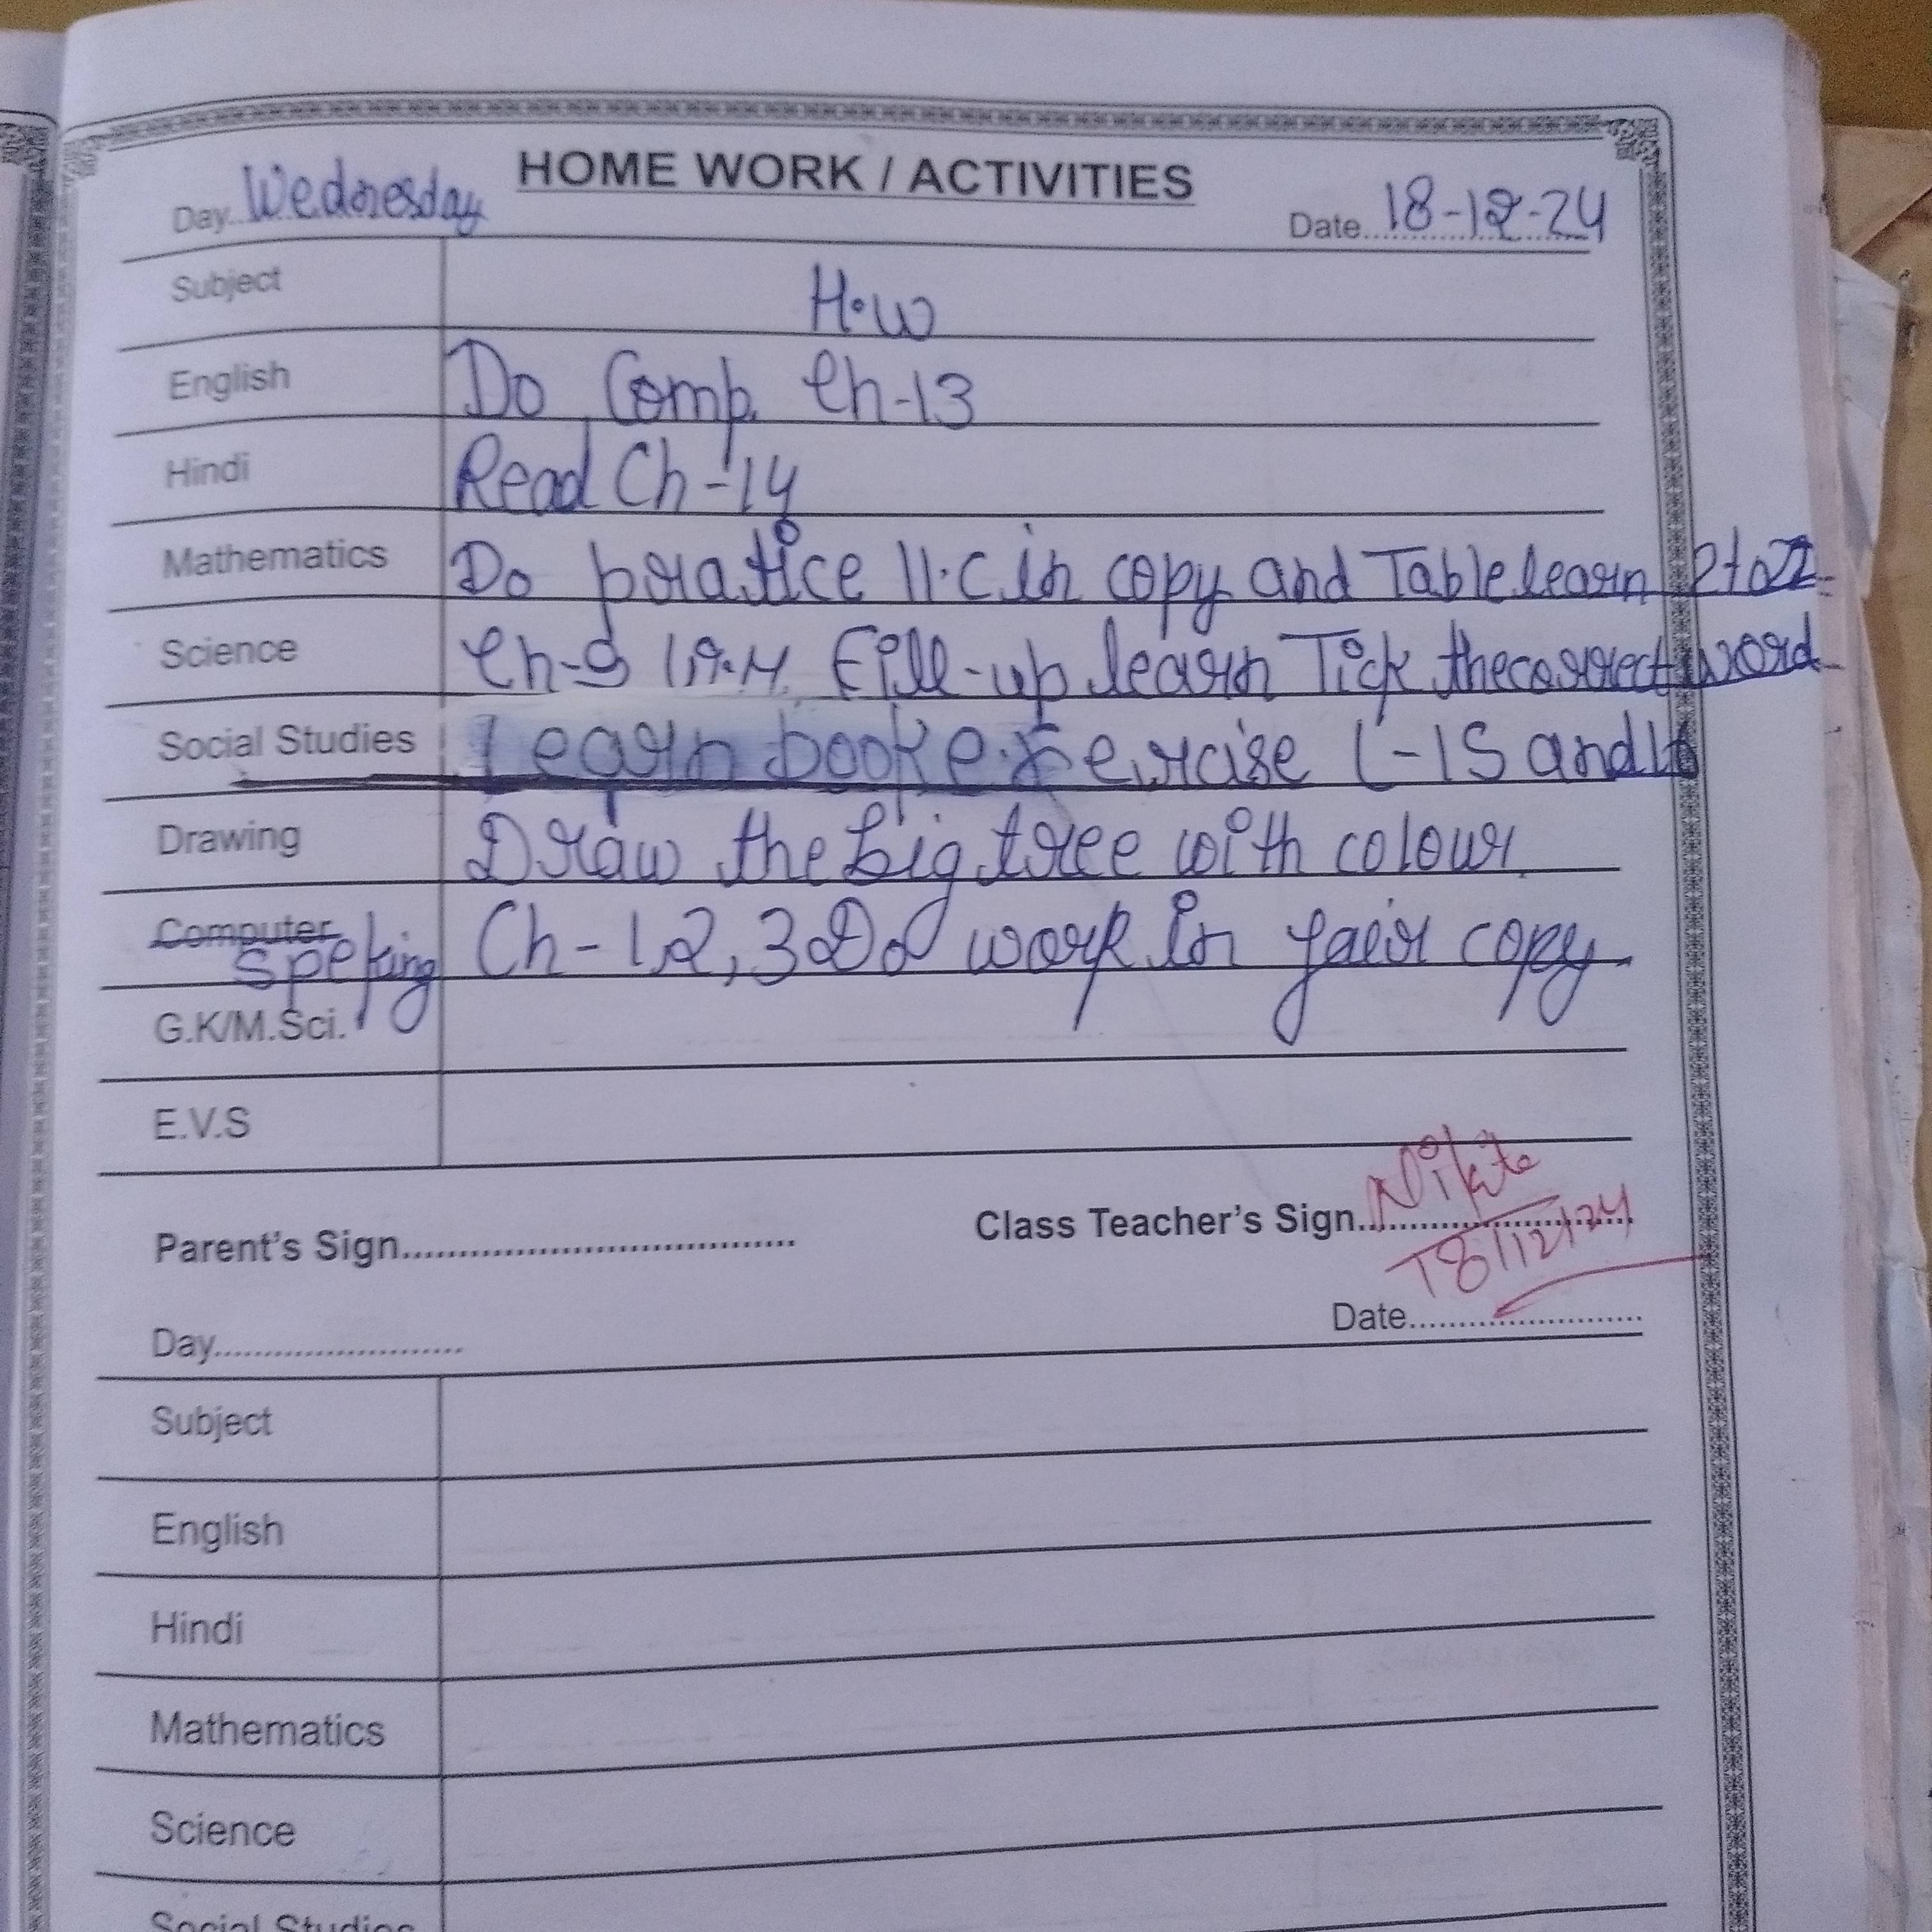 HOME WORK / ACTIVITIES
Day..Wednesday
Date...18-12-24
Subject H.W
English Do Comp. Ch-13
Hindi Read Ch-14
Mathematics Do pratice 11.C in copy and Table learn 2 to
Science Ch-9 Fill-up learn Tick the correct word
Social Studies Learn book exercise L-15 and 16
Drawing Draw the big tree with colour.
Computer speking Ch-1,2,3 Do work in fair copy.
G.K/M.Sci.
E.V.S
Parent's Sign..........
Class Teacher's Sign..........
18/12/24
Day..........
Date..........
Subject
English
Hindi
Mathematics
Science
Social Studies